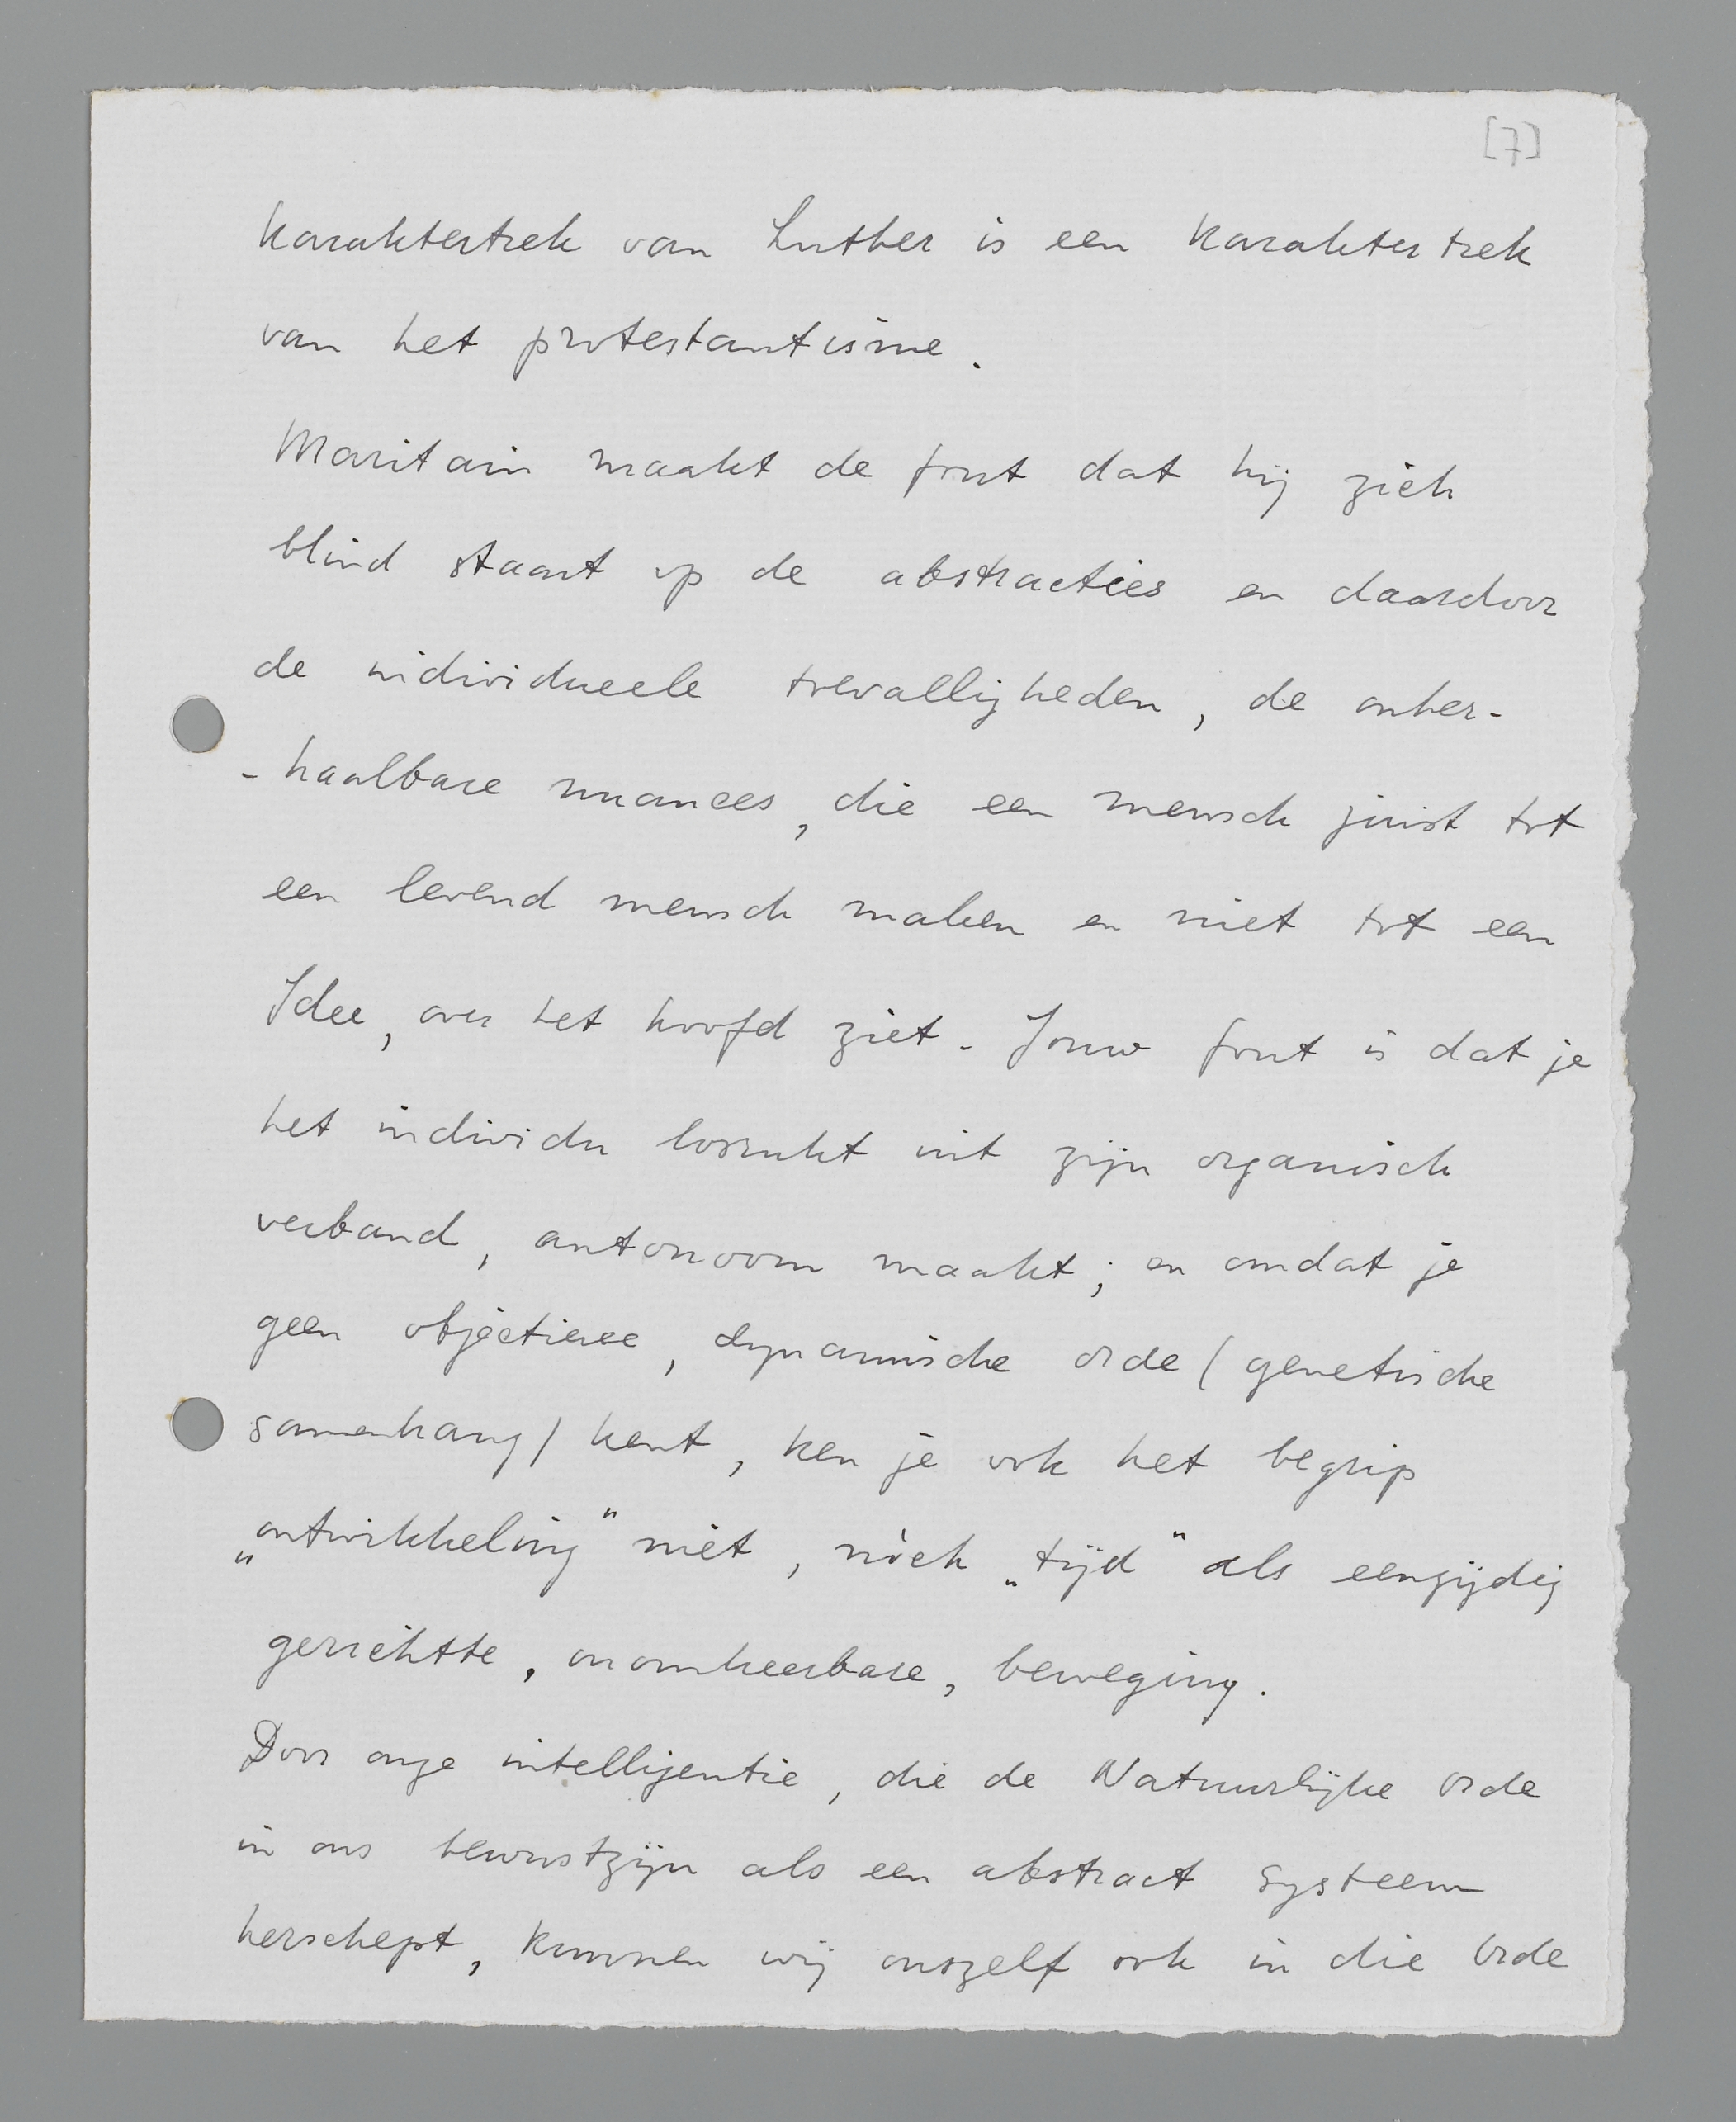 [7]
karaktertrek van Luther is een karaktertrek
van het protestantisme.
Maritain maakt de fout dat hij zich
blind staart op de abstracties en daardoor
de individueele toevalligheden, de onher-
-haalbare nuances, die een mensch juist tot
een levend mensch maken en niet tot een
Idee, over het hoofd ziet. Jouw fout is dat je
het individu losrukt uit zijn organisch
verband, autonoom maakt; en omdat je
geen objectieve, dynamische orde (genetische
samenhang) kent, ken je ook het begrip
„ontwikkeling" niet, nòch „tijd" als eenzijdig
gerichtte, onomkeerbare, beweging.
Door onze intelligentie, die de Natuurlijke orde
in ons bewustzijn als een abstract systeem
herschept, kunnen wij onszelf ook in die orde